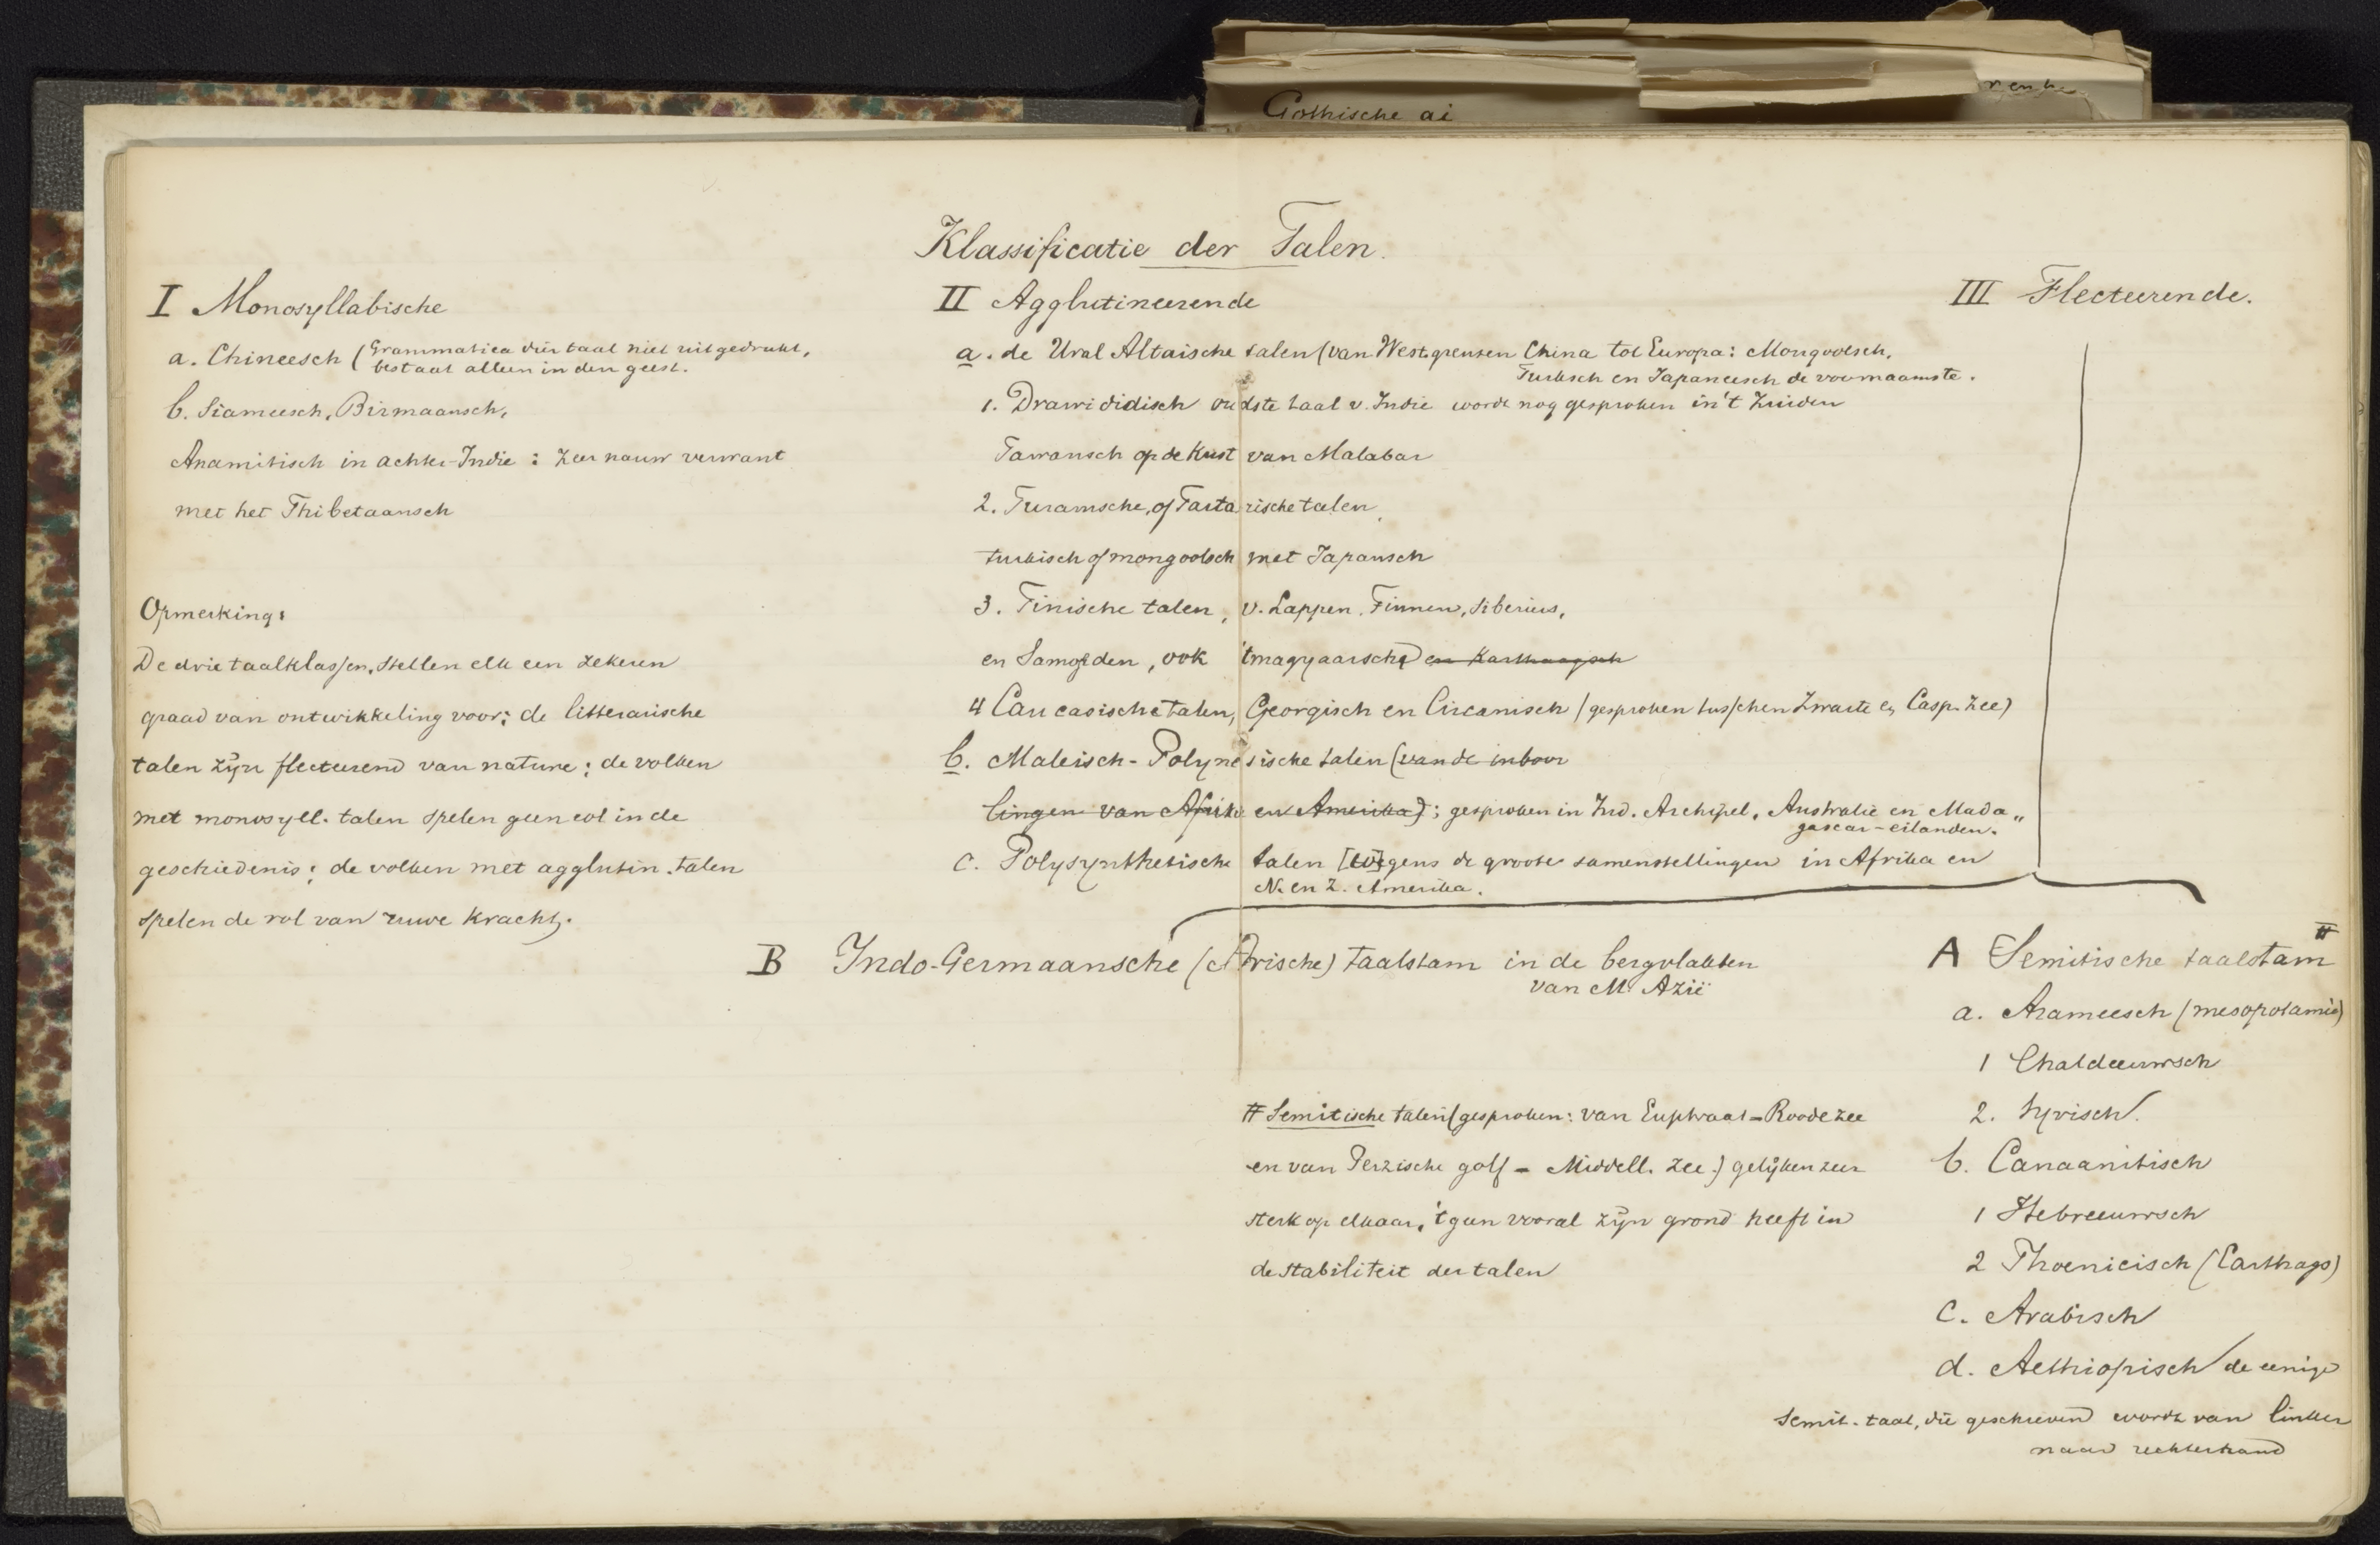 Gothische ai
Klassificatie der Talen.
I Monosyllabische
a. Chineesch (Grammatica dier taal niet uitgedrukt,
bestaat alleen in den geest.
b. Siameesch, Birmaansch,
Anamitisch in achter-Indie : zeer nauw verwant
met het Thibetaansch
Opmerking:
De drie taalklassen, stellen elk een zekeren
graad van ontwikkeling voor; de litterarische
talen zijn flecteerend van nature; de volken
met monosyll. talen spelen geen rol in de
geschiedenis; de volken met agglutin. talen
spelen de rol van ruwe kracht.
II Agglutineerende
a. de Ural Altaische talen (van Westgrenzen China tot Europa: Mongoolsch,
Turksch en Japaneesch de voornaamste.
1. Drawididisch oudste taal v. Indie wordt nog gesproken in't Zuiden
op de Kust van Malabar
2. Turansche, of Tartarische talen,
turkisch of mongoolsch met Japansch
3. Finische talen, v. Lappen, Finnen, Siberiers,
en Samojeden, ook 'tmagyaarsche en Karthaagsch
4 Caucasische talen, Georgisch en Circanisch (gesproken tusschen Zwarte en Casp. Zee)
b. Maleisch-Polynesische talen (van de inboor
lingen van Afrika en Amerika); gesproken in Ind. Archipel, Australië en Mada„
gascar-eilanden.
c. Polysynthetische talen [wegens de groote samenstellingen in Afrika en
N. en Z. Amerika.
III Flecteerende.
B Indo-Germaansche (Arische) taalstam in de bergvlakten
van M. Azië
# Semitische talen (gesproken: van Euphraat - Roode zee
en van Perzische golf - Middell. zee.) gelijken zeer
sterk op elkaar, 'tgeen vooral zijn grond heeft in
de stabiliteit der talen
A Semitische taalstam #
a. Arameesch (mesopotamië)
1 Chaldeeuwsch
2. Syrisch.
b. Canaanitisch
1 Hebreeuwsch
2 Phoenicisch (Carthago)
c. Arabisch
d. Aethiopisch de eenige
semit. taal, die geschreven wordt van linker
naar rechterhand